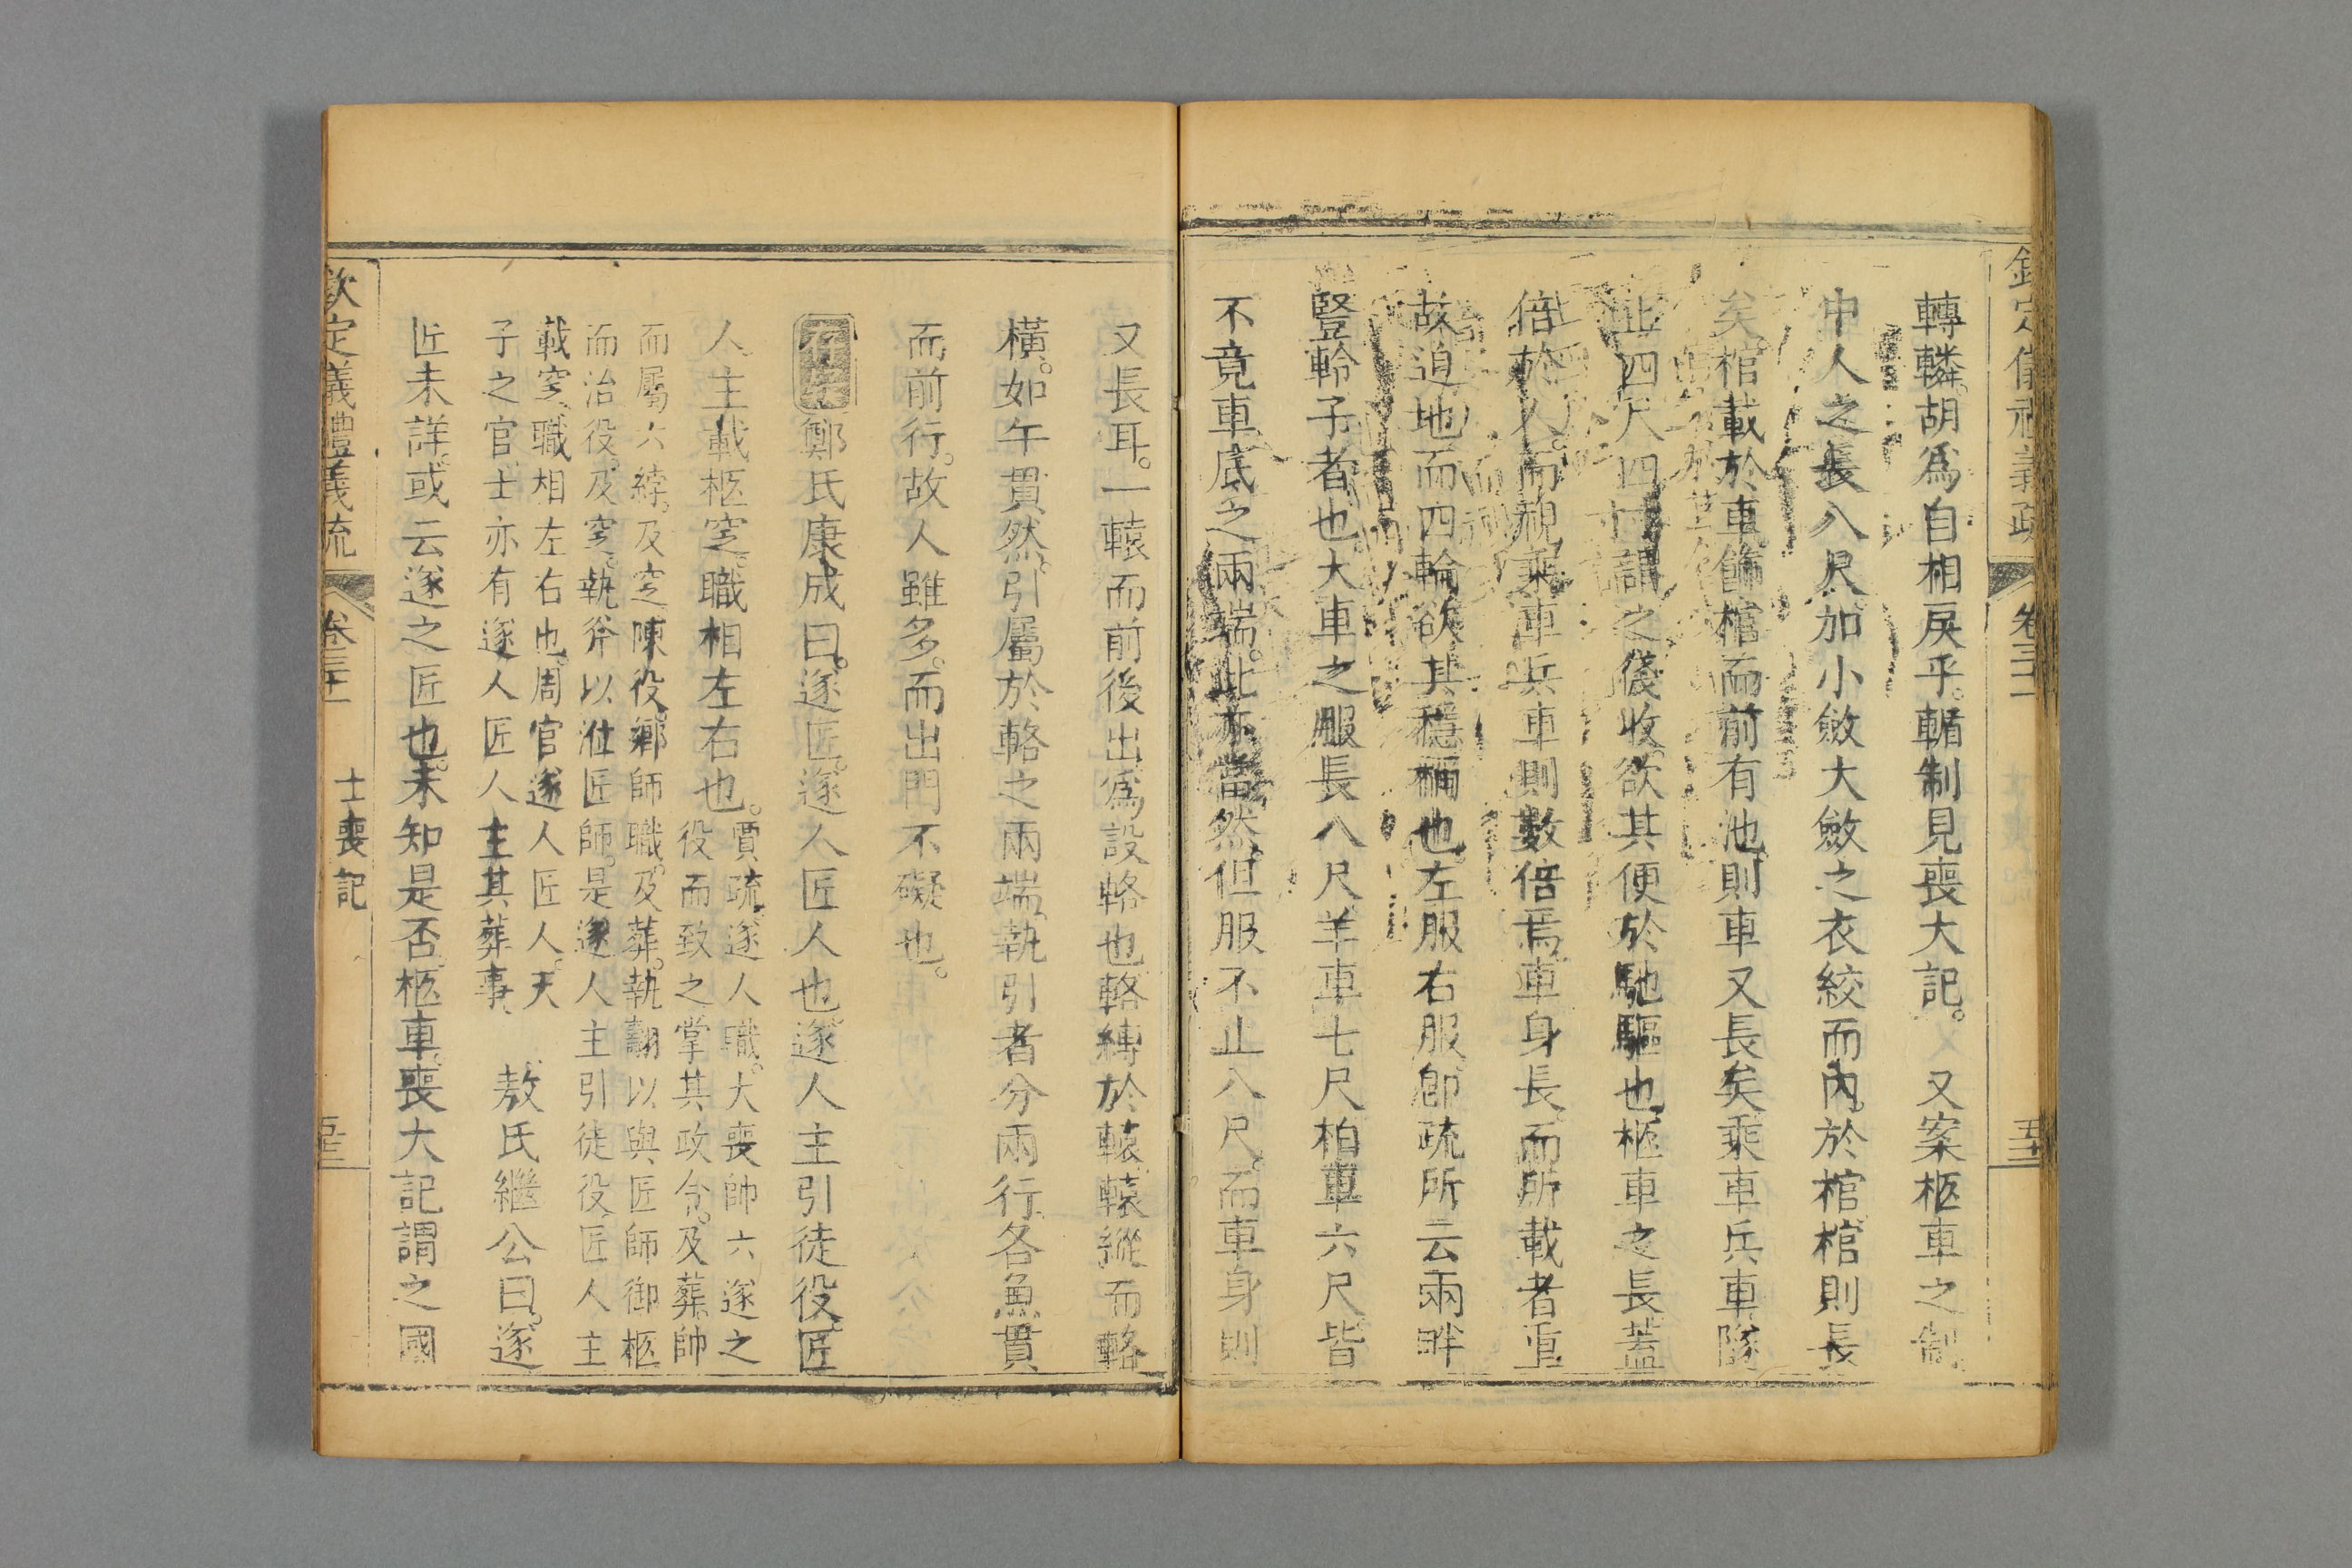 欽定儀禮義疏 卷三十一 五十二
轉轔。胡爲自相戾乎。輴制見喪大記。又案柩車之制。
中人之長八尺。加小斂大斂之衣絞而內於棺。棺則長
矣。棺載於車。飾棺而前有池。則車又長矣。乘車兵車。隧
止四尺四寸。謂之俴收。欲其便於馳驅也。柩車之長。蓋
倍於人。而視乘車兵車則數倍焉。車身長。而所載者重。
故迫地而四輪。欲其穩稱也。左服右服。卽疏所云兩畔
豎軨子者也。大車之服長八尺。羊車七尺。柏車六尺。皆
不竟車底之兩端。此亦當然。但服不止八尺。而車身則
又長耳。一轅而前後出。爲設輅也。輅縛於轅。轅縱而輅
橫。如午貫然。引屬於輅之兩端。執引者分兩行。各魚貫
而前行。故人雖多。而出門不礙也。
鄭氏康成曰。遂匠。遂人匠人也。遂人主引徒役。匠
人主載柩窆。職相左右也。賈疏。遂人職。大喪帥六遂之
役而致之。掌其政令。及葬。帥
而屬六綍。及窆陳役。鄉師職。及葬。執翿以與匠師御柩
而治役。及窆。執斧以涖匠師。是遂人主引徒役。匠人主
載窆。職相左右也。周官遂人匠人。天
子之官。士亦有遂人匠人主其葬事。
敖氏繼公曰。遂
匠未詳。或云遂之匠也。未知是否。柩車。喪大記謂之國
欽定儀禮義疏 卷三十一 士喪記 五十三